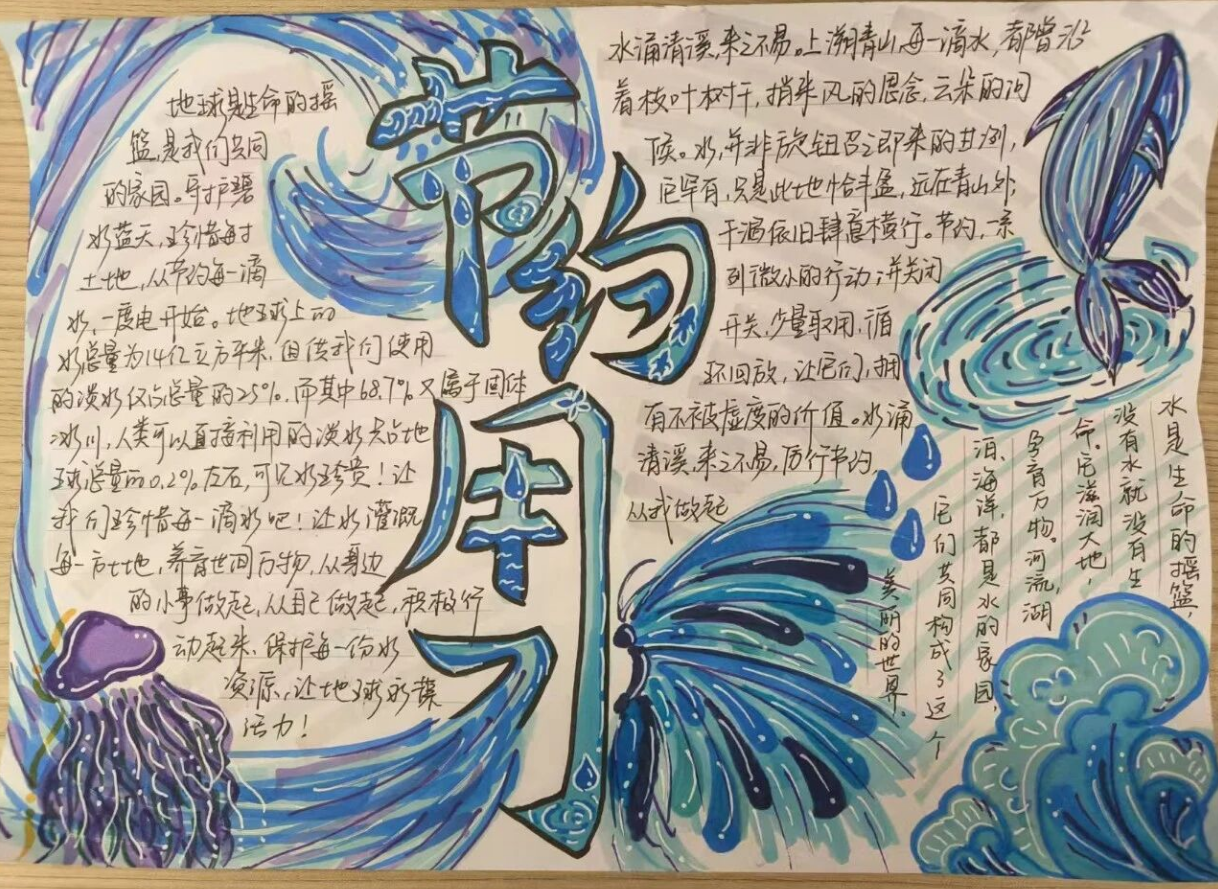 节约用水
地球是生命的摇
篮,是我们共同
的家园。守护碧
水蓝天,珍惜每寸
土地,从节约每一滴
水,一度电开始。地球上的
水总量为14亿立方千米,但供我们使用
的淡水仅占总量的25%,而其中68.7%又属于固体
冰川,人类可以直接利用的淡水只占地
球总量的0.2%左右,可见水珍贵!让
我们珍惜每一滴水吧!让水灌溉
每一方土地,养育世间万物,从身边
的小事做起,从自己做起,积极行
动起来,保护每一份水
资源,让地球永葆
活力!
水涌清溪,来之不易。上溯青山,每一滴水,都曾沿
着枝叶树干,捎来风的思念,云朵的问
候。水,并非旋钮召之即来的甘冽,
它罕有,只是此地恰丰盈,远在青山外,
干涸依旧肆意横行。节约,一系
列微小的行动,关闭
开关,少量取用,循
环回放,让它们,拥
有不被虚度的价值。水涌
清溪,来之不易,厉行节约,
从我做起
水是生命的摇篮,
没有水就没有生
命。它滋润大地,
孕育万物。河流,湖
泊,海洋,都是水的家园,
它们共同构成了这个
美丽的世界。